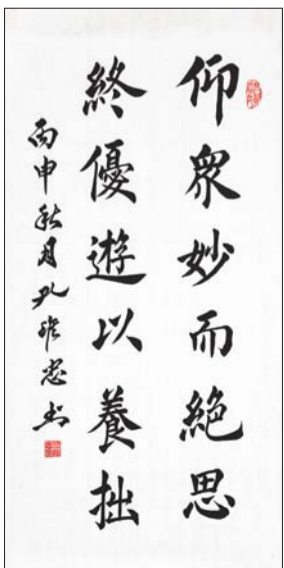 仰衆妙而絕思
終優遊以養拙
丙申秋月孔維忠书